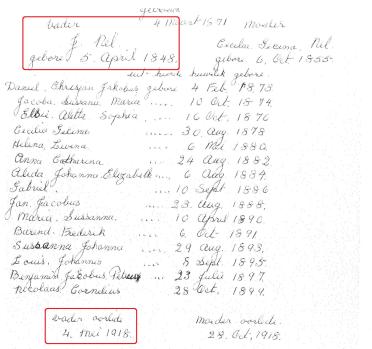 getrouwd
4 Maart 1871
vader Moeder
J Nel. Cecilia Gesina, Nel.
gebore 5. April 1848. gebore 6, Oct 1855.
uit hierdie huwelik gebore.
Daniel, Chrisjan Jakobus gebore 4 Feb 1873.
Jacoba, Susana Maria ..... 10 Oct. 1874.
Elsie, Aletta Sophia .... 16 Oct 1876
Cecilia Gesina ..... 30 Aug 1878
Helena, Levina ..... 6 Mei 1880.
Anna Catherina ..... 24 Aug. 1882
Aluda Johanna Elizabeth .... 6 Aug 1884.
Gabriel. .... 10 Sept 1886
Jan, Jacobus ..... 23. Aug. 1888.
Maria. Sussanna. .... 10 April 1890.
Barend. Frederik .... 6 Oct 1891
Sussanna Johanna .... 29 Aug. 1893,
Louis, Johannis .... 8 Sept. 1895
Benjamin Jakobus Petrus .... 23 Julie 1897.
Nicolaas Cornelius 28 Oct. 1899.
vader oorlede moeder oorlede.
4. Mei 1918. 28. Oct, 1918.